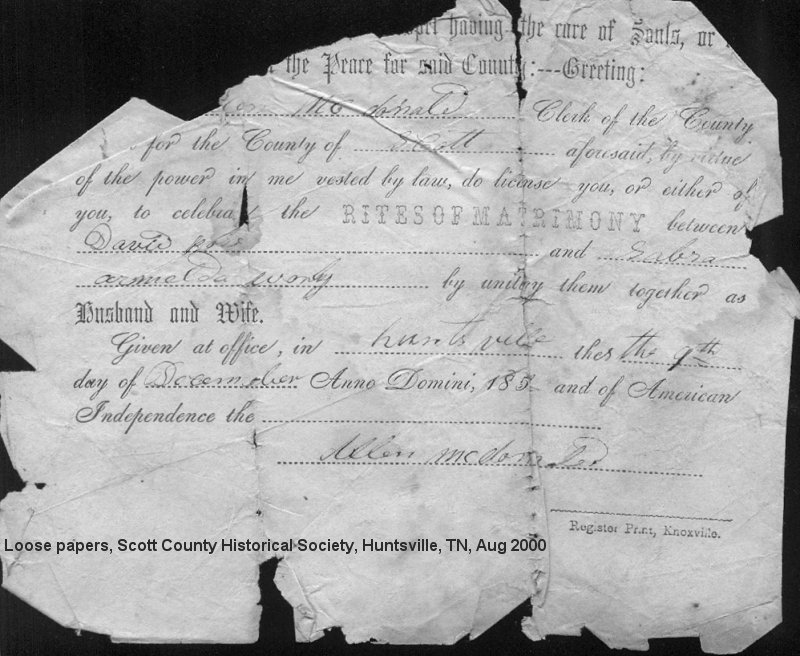 having the care of Souls, or
the Peace for said County:---Greeting:
Clerk of the County
for the County of Scott aforesaid, by virtue
of the power in me vested by law, do license you, or either of
you, to celebrat the RITES OF MATRIMONY between
David and Sabra
by uniting them together as
Husband and Wife.
Given at office, in huntsville this the 9th
day of December Anno Domini, 185 and of American
Independence the
Allen
Register Print, Knoxville.
Loose papers, Scott County Historical Society, Huntsville, TN, Aug 2000